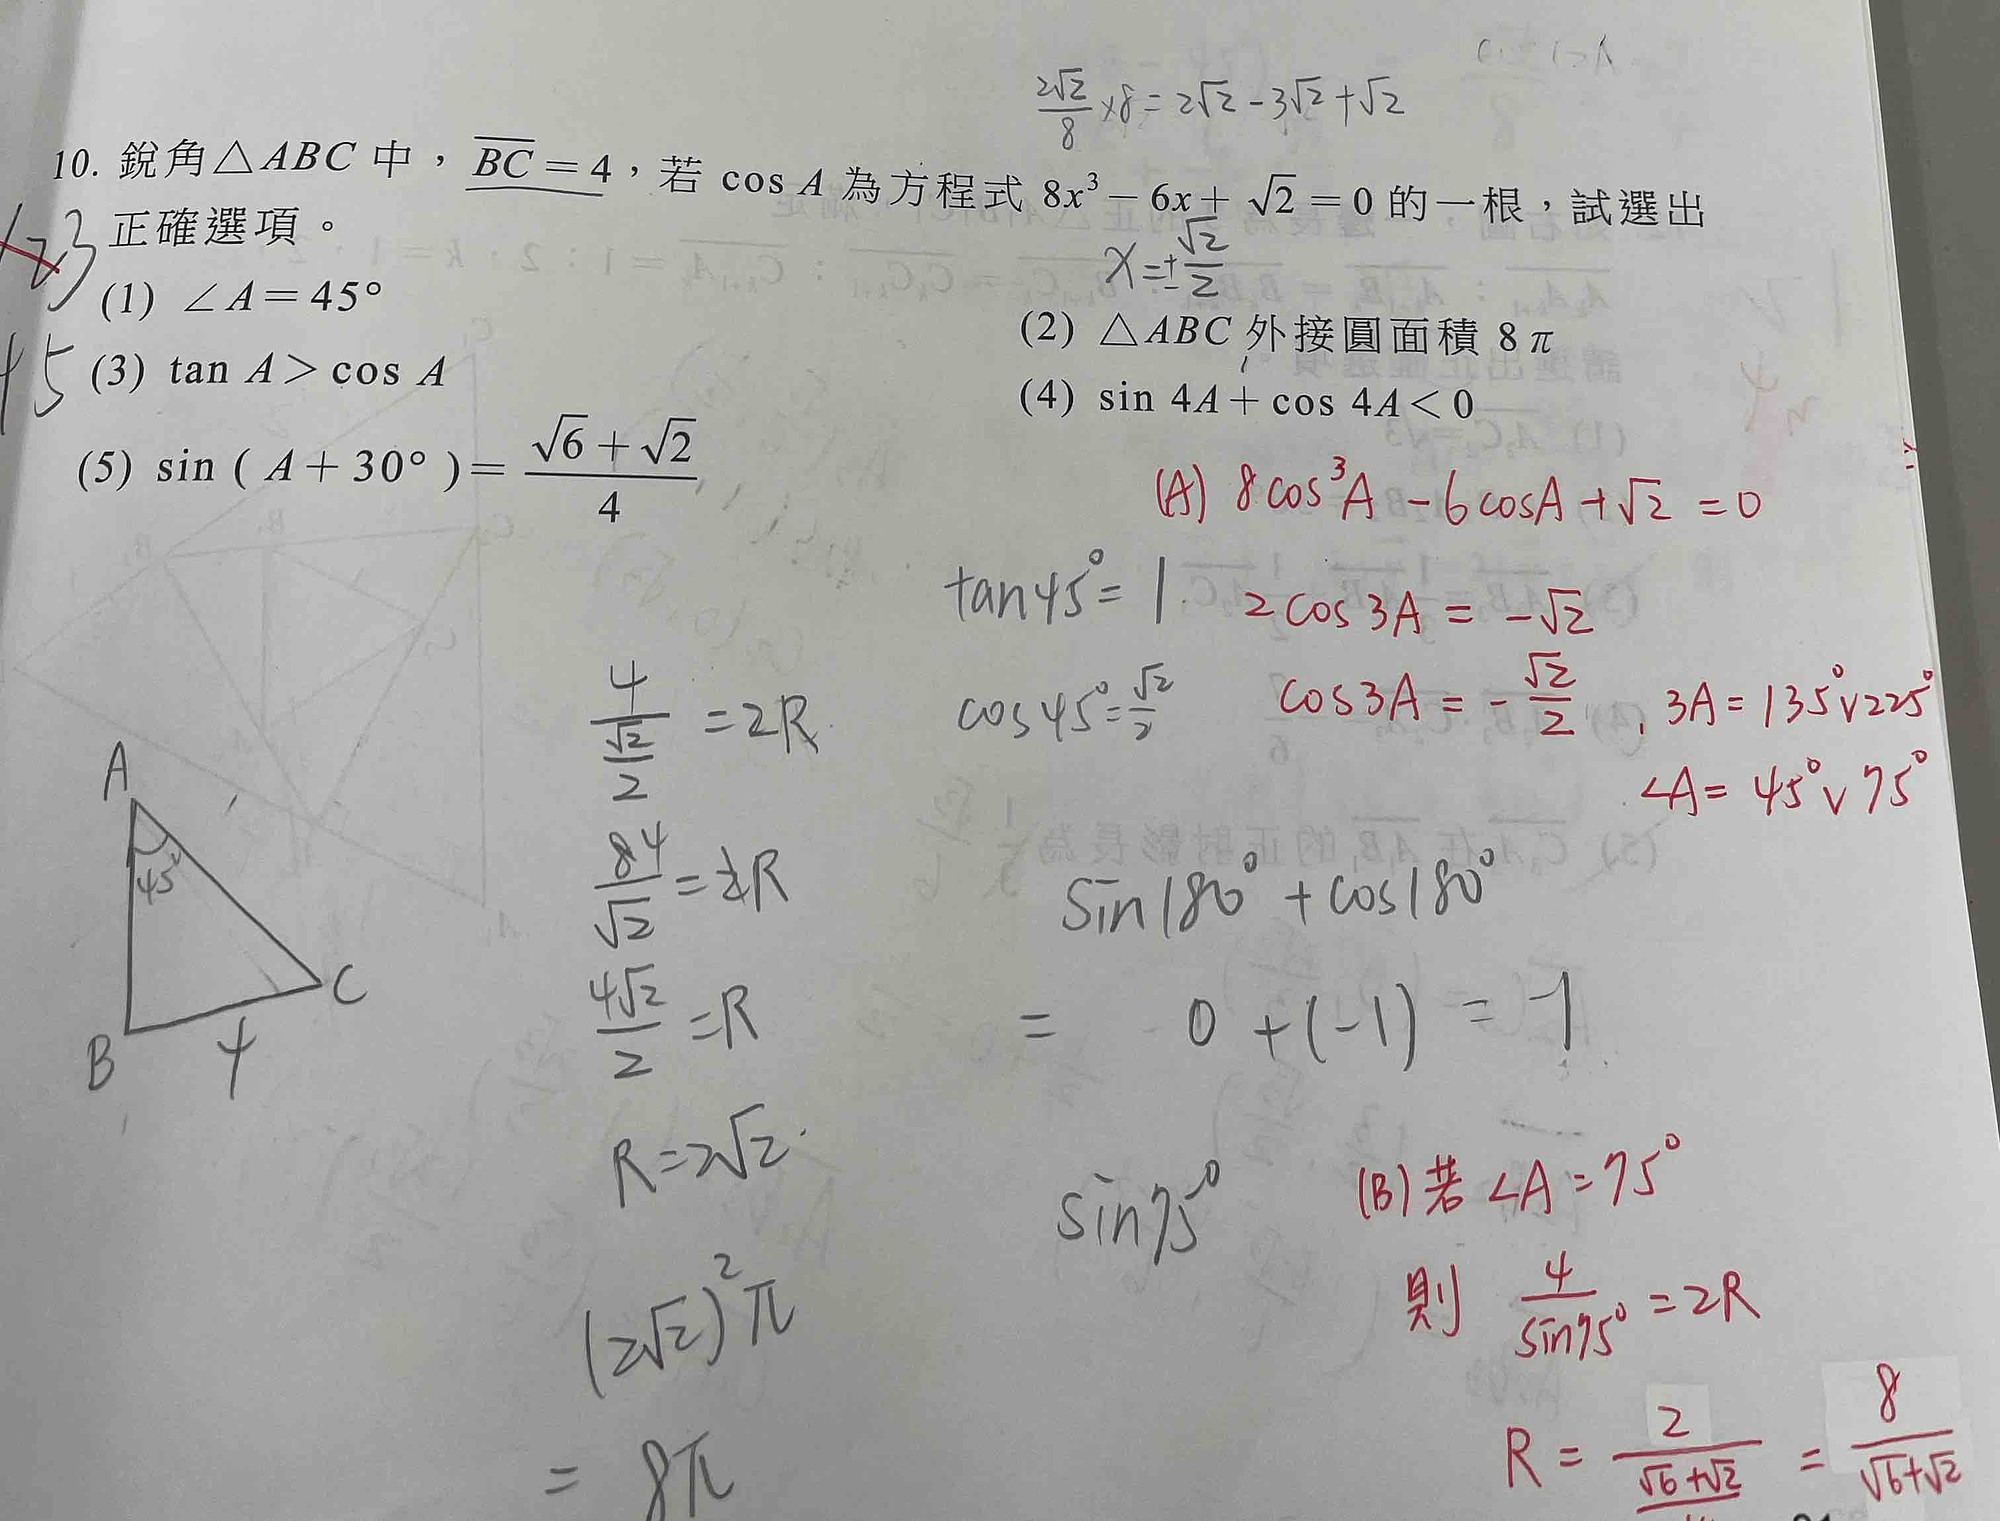 2√2/8 ×8 = 2√2 - 3√2 + √2
10. 銳角△ABC 中，BC = 4，若 cos A 為方程式 8x³ - 6x + √2 = 0 的一根，試選出
正確選項。
x = ±√2/2
123
45
(1) ∠A = 45°
(2) △ABC 外接圓面積 8π
(3) tan A > cos A
(4) sin 4A + cos 4A < 0
(5) sin ( A + 30° ) = (√6 + √2)/4
(A) 8cos³A - 6cosA + √2 = 0
tan45° = 1
2cos3A = -√2
cos45° = √2/2
cos3A = -√2/2, 3A = 135° ∨ 225°
∠A = 45° ∨ 75°
4/(√2/2) = 2R
84/√2 = 2R
4√2/2 = R
R = 2√2
(2√2)²π
= 8π
A
45
B
4
C
sin180° + cos180°
= 0 + (-1) = -1
sin75°
(B) 若 ∠A = 75°
則 4/sin75° = 2R
R = 2/((√6+√2)/4) = 8/(√6+√2)